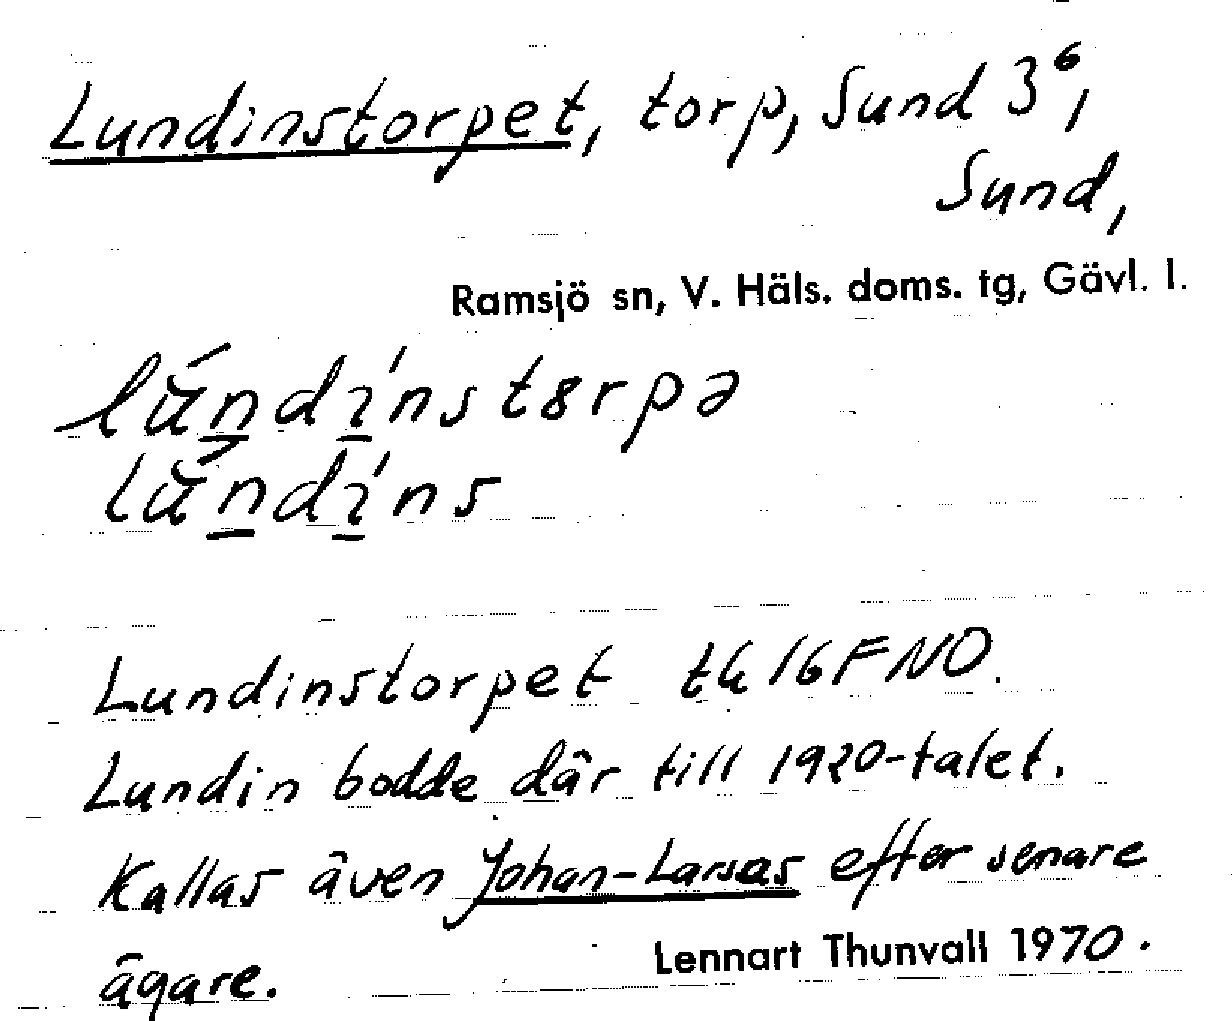 Lundinstorpet, torp, Sund 3⁶,
Sund,
Ramsjö sn, V. Häls. doms. tg, Gävl. l.
lundinstɵrpə
lundins
Lundinstorpet tk 16F NO.
Lundin bodde där till 1920-talet.
Kallas även Johan-Larsas efter senare
ägare.
Lennart Thunvall 1970.